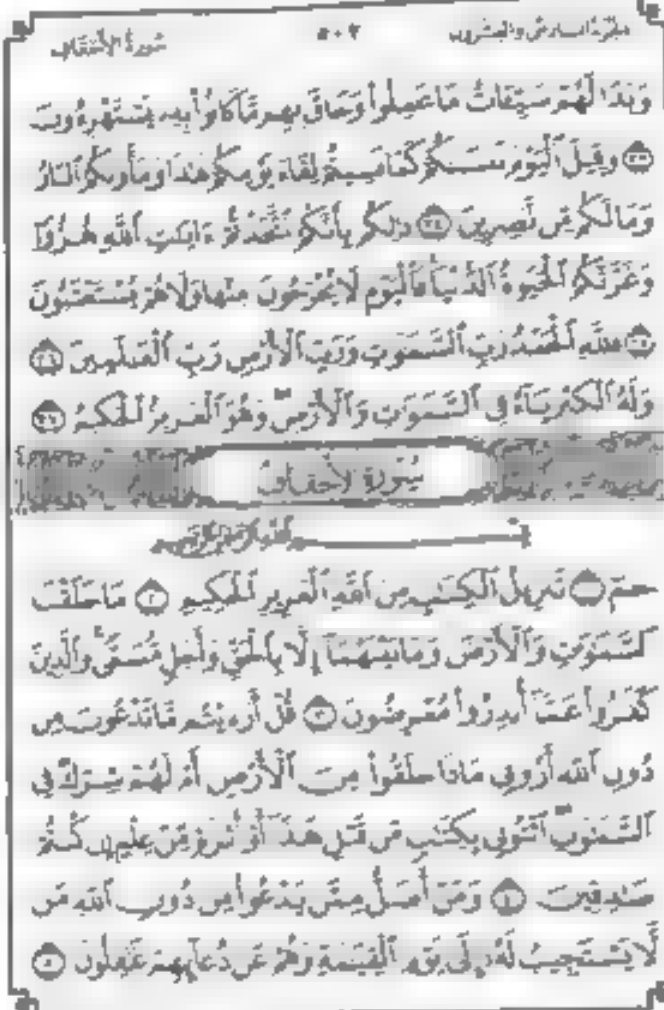 الجزء السادس والعشرون ٥٠٢ سورة الأحقاف
وَبَدَا لَهُمْ سَيِّئَاتُ مَا عَمِلُوا۟ وَحَاقَ بِهِم مَّا كَانُوا۟ بِهِۦ يَسْتَهْزِءُونَ
٣٣ وَقِيلَ ٱلْيَوْمَ نَنسَىٰكُمْ كَمَا نَسِيتُمْ لِقَآءَ يَوْمِكُمْ هَٰذَا وَمَأْوَىٰكُمُ ٱلنَّارُ
وَمَا لَكُم مِّن نَّٰصِرِينَ ٣٤ ذَٰلِكُم بِأَنَّكُمُ ٱتَّخَذْتُمْ ءَايَٰتِ ٱللَّهِ هُزُوًا
وَغَرَّتْكُمُ ٱلْحَيَوٰةُ ٱلدُّنْيَا فَٱلْيَوْمَ لَا يُخْرَجُونَ مِنْهَا وَلَا هُمْ يُسْتَعْتَبُونَ
٣٥ فَلِلَّهِ ٱلْحَمْدُ رَبِّ ٱلسَّمَٰوَٰتِ وَرَبِّ ٱلْأَرْضِ رَبِّ ٱلْعَٰلَمِينَ ٣٦
وَلَهُ ٱلْكِبْرِيَآءُ فِى ٱلسَّمَٰوَٰتِ وَٱلْأَرْضِ وَهُوَ ٱلْعَزِيزُ ٱلْحَكِيمُ ٣٧
سُورَةُ الأَحْقَافِ
بِسْمِ ٱللَّهِ ٱلرَّحْمَٰنِ ٱلرَّحِيمِ
حمٓ ١ تَنزِيلُ ٱلْكِتَٰبِ مِنَ ٱللَّهِ ٱلْعَزِيزِ ٱلْحَكِيمِ ٢ مَا خَلَقْنَا
ٱلسَّمَٰوَٰتِ وَٱلْأَرْضَ وَمَا بَيْنَهُمَآ إِلَّا بِٱلْحَقِّ وَأَجَلٍ مُّسَمًّى وَٱلَّذِينَ
كَفَرُوا۟ عَمَّآ أُنذِرُوا۟ مُعْرِضُونَ ٣ قُلْ أَرَءَيْتُم مَّا تَدْعُونَ مِن
دُونِ ٱللَّهِ أَرُونِى مَاذَا خَلَقُوا۟ مِنَ ٱلْأَرْضِ أَمْ لَهُمْ شِرْكٌ فِى
ٱلسَّمَٰوَٰتِ ٱئْتُونِى بِكِتَٰبٍ مِّن قَبْلِ هَٰذَآ أَوْ أَثَٰرَةٍ مِّنْ عِلْمٍ إِن كُنتُمْ
صَٰدِقِينَ ٤ وَمَنْ أَضَلُّ مِمَّن يَدْعُوا۟ مِن دُونِ ٱللَّهِ مَن
لَّا يَسْتَجِيبُ لَهُۥٓ إِلَىٰ يَوْمِ ٱلْقِيَٰمَةِ وَهُمْ عَن دُعَآئِهِمْ غَٰفِلُونَ ٥